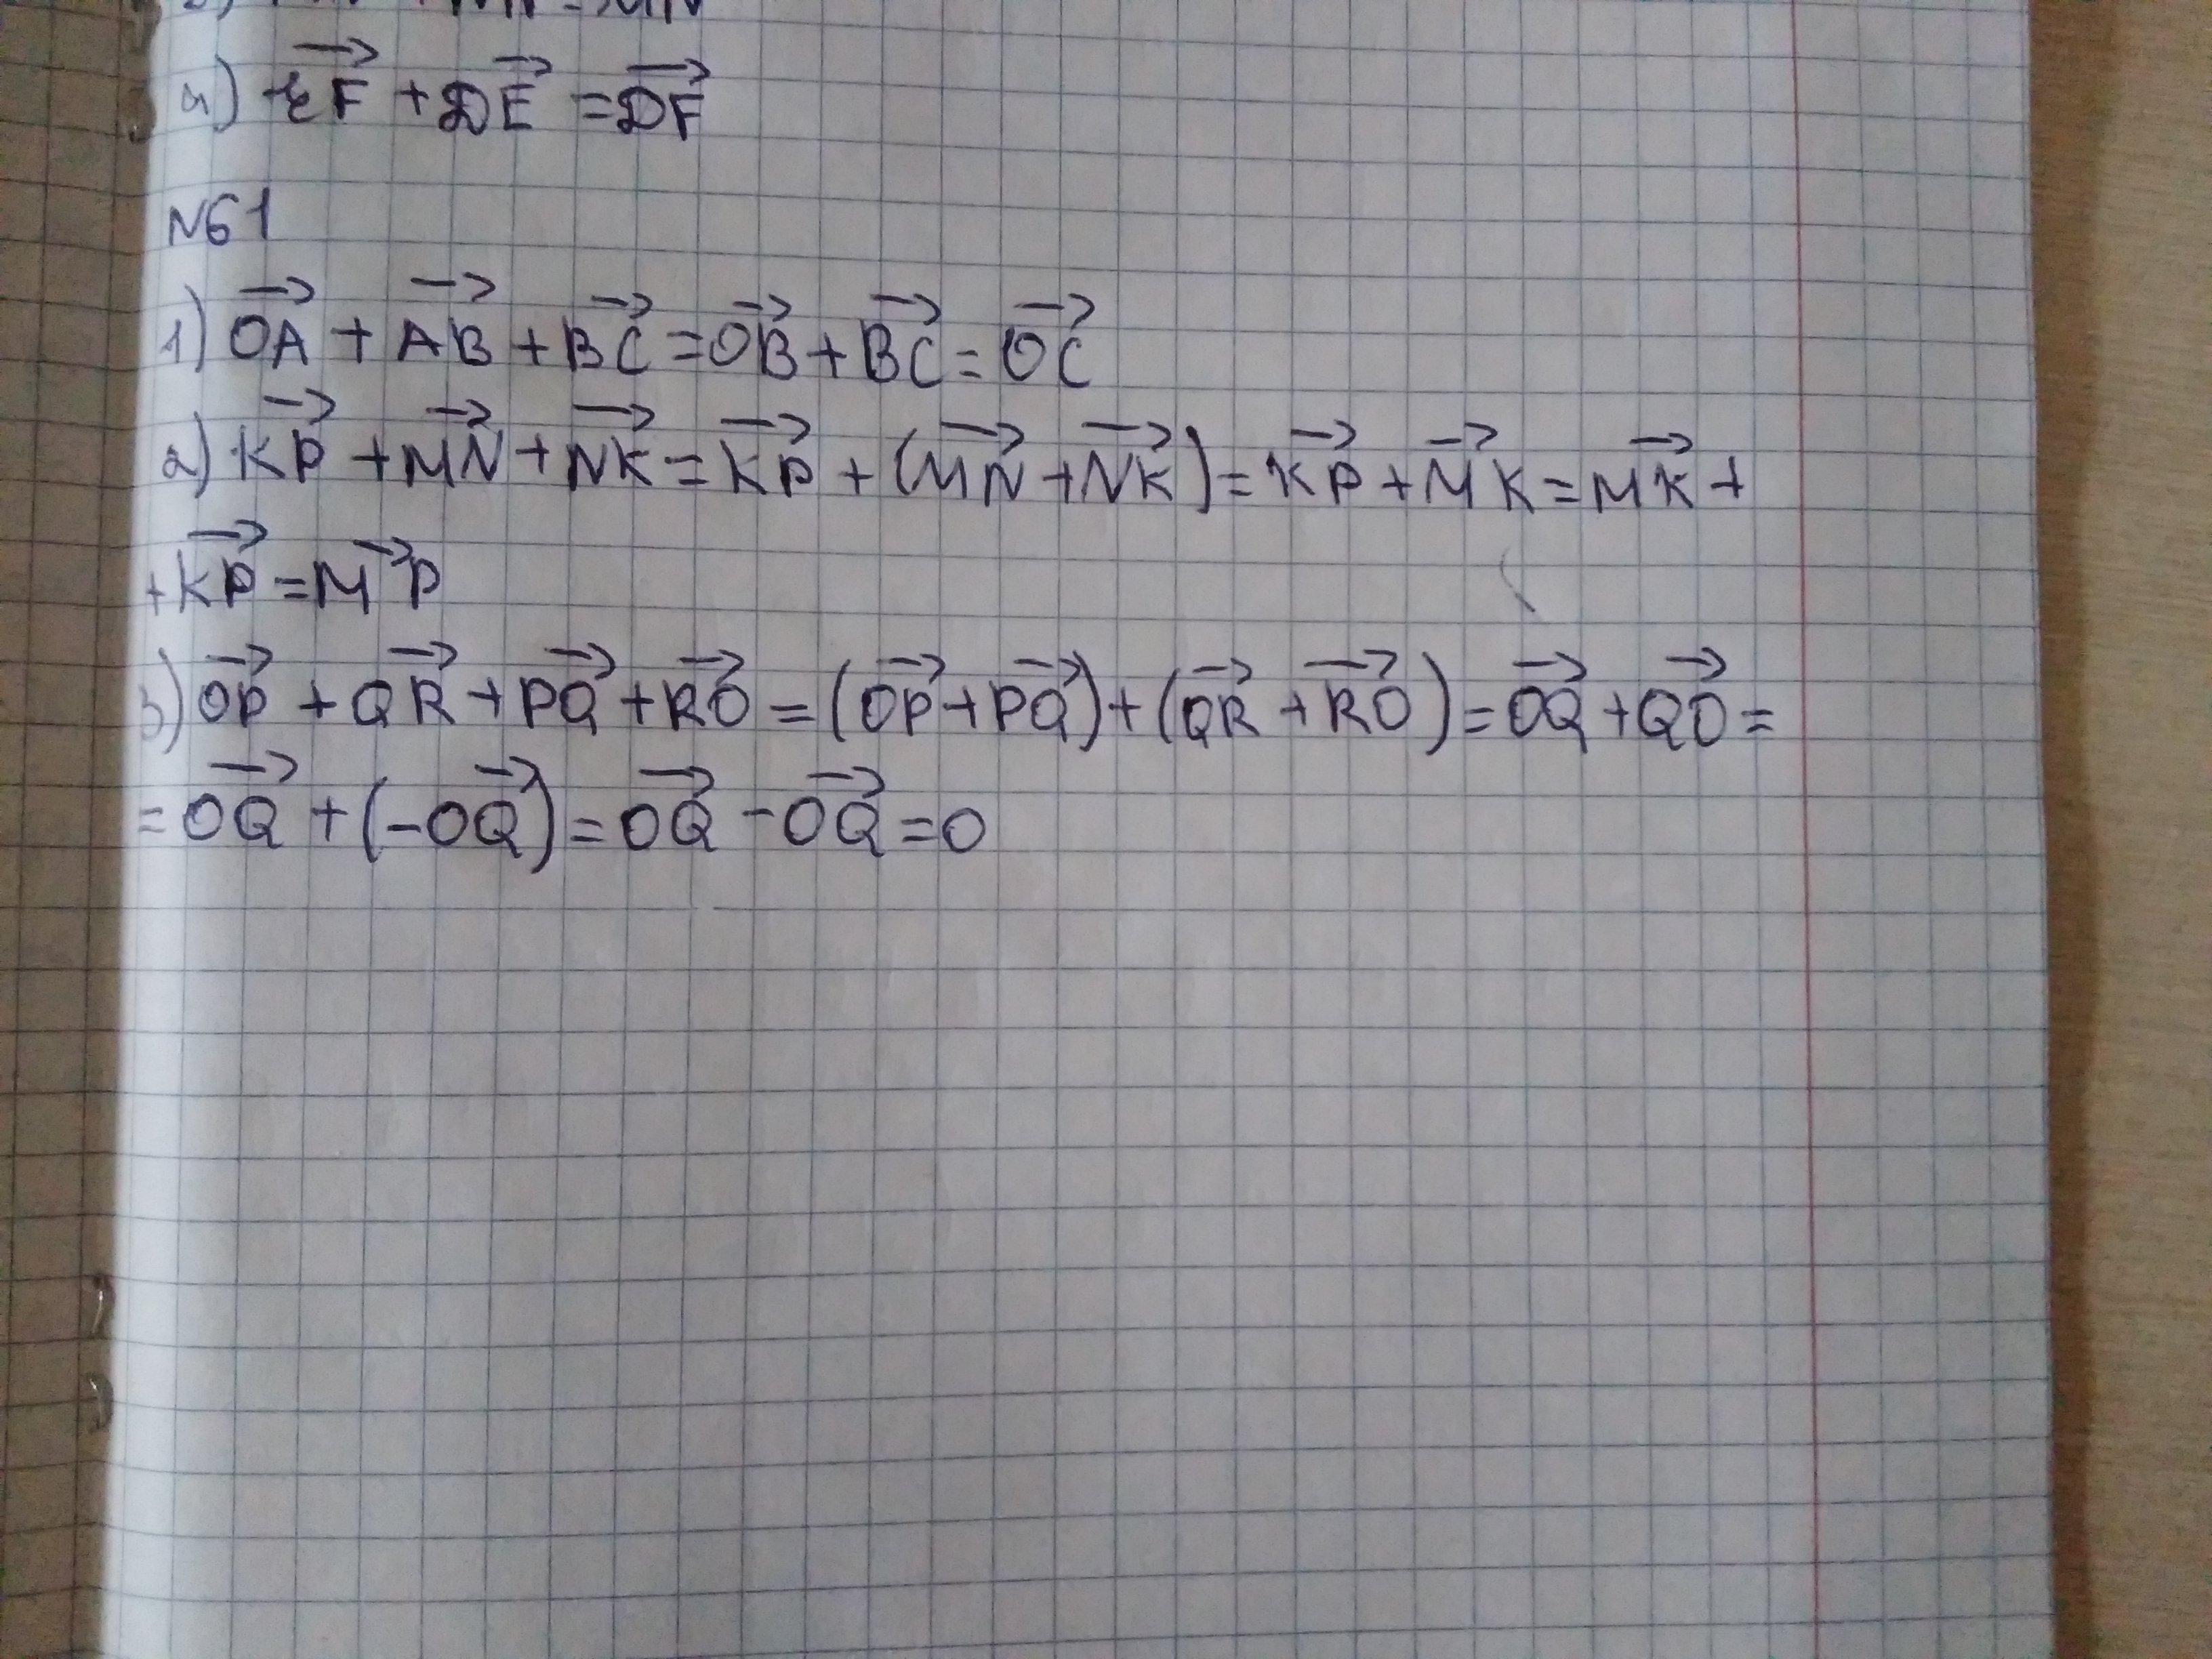 4) EF + DE = DF
N61
1) OA + AB + BC = OB + BC = OC
2) KP + MN + NK = KP + (MN + NK) = KP + MK = MK +
+ KP = MP
3) OP + QR + PQ + RO = (OP + PQ) + (QR + RO) = OQ + QO =
= OQ + (-OQ) = OQ - OQ = 0